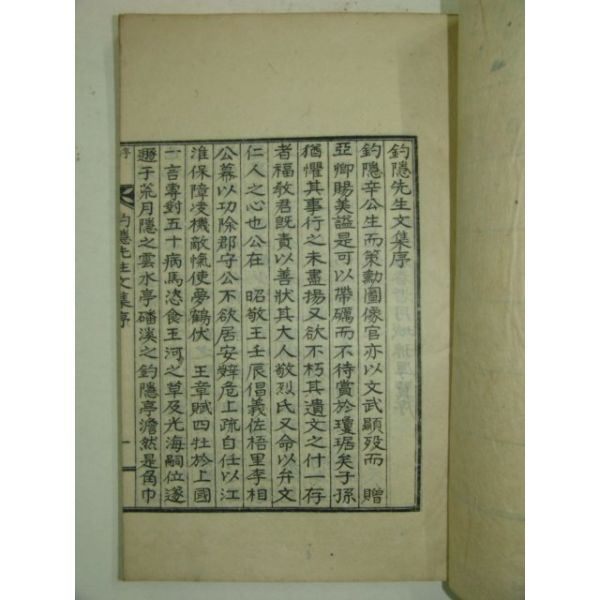 釣隱先生文集序
釣隱辛公生而策勳圖像官亦以文武顯歿而 贈
亞卿賜美諡是可以帶礪而不待賞於瓊琚矣子孫
猶懼其事行之未盡揚又欲不朽其遺文之什一存
者福敎君旣責以善狀其大人敬烈氏又命以弁文
仁人之心也公在 昭敬王壬辰倡義佐梧里李相
公幕以功除郡守公不欲居安辭危上疏自任以江
淮保障凌機敵愾使夢鶴伏 王章賦四牡於上國
一言專對五十病馬恣食玉河之草及光海嗣位遂
遯于荒月隱之雲水亭磻溪之釣隱亭澹然是角巾
序
釣隱先生文集序
一